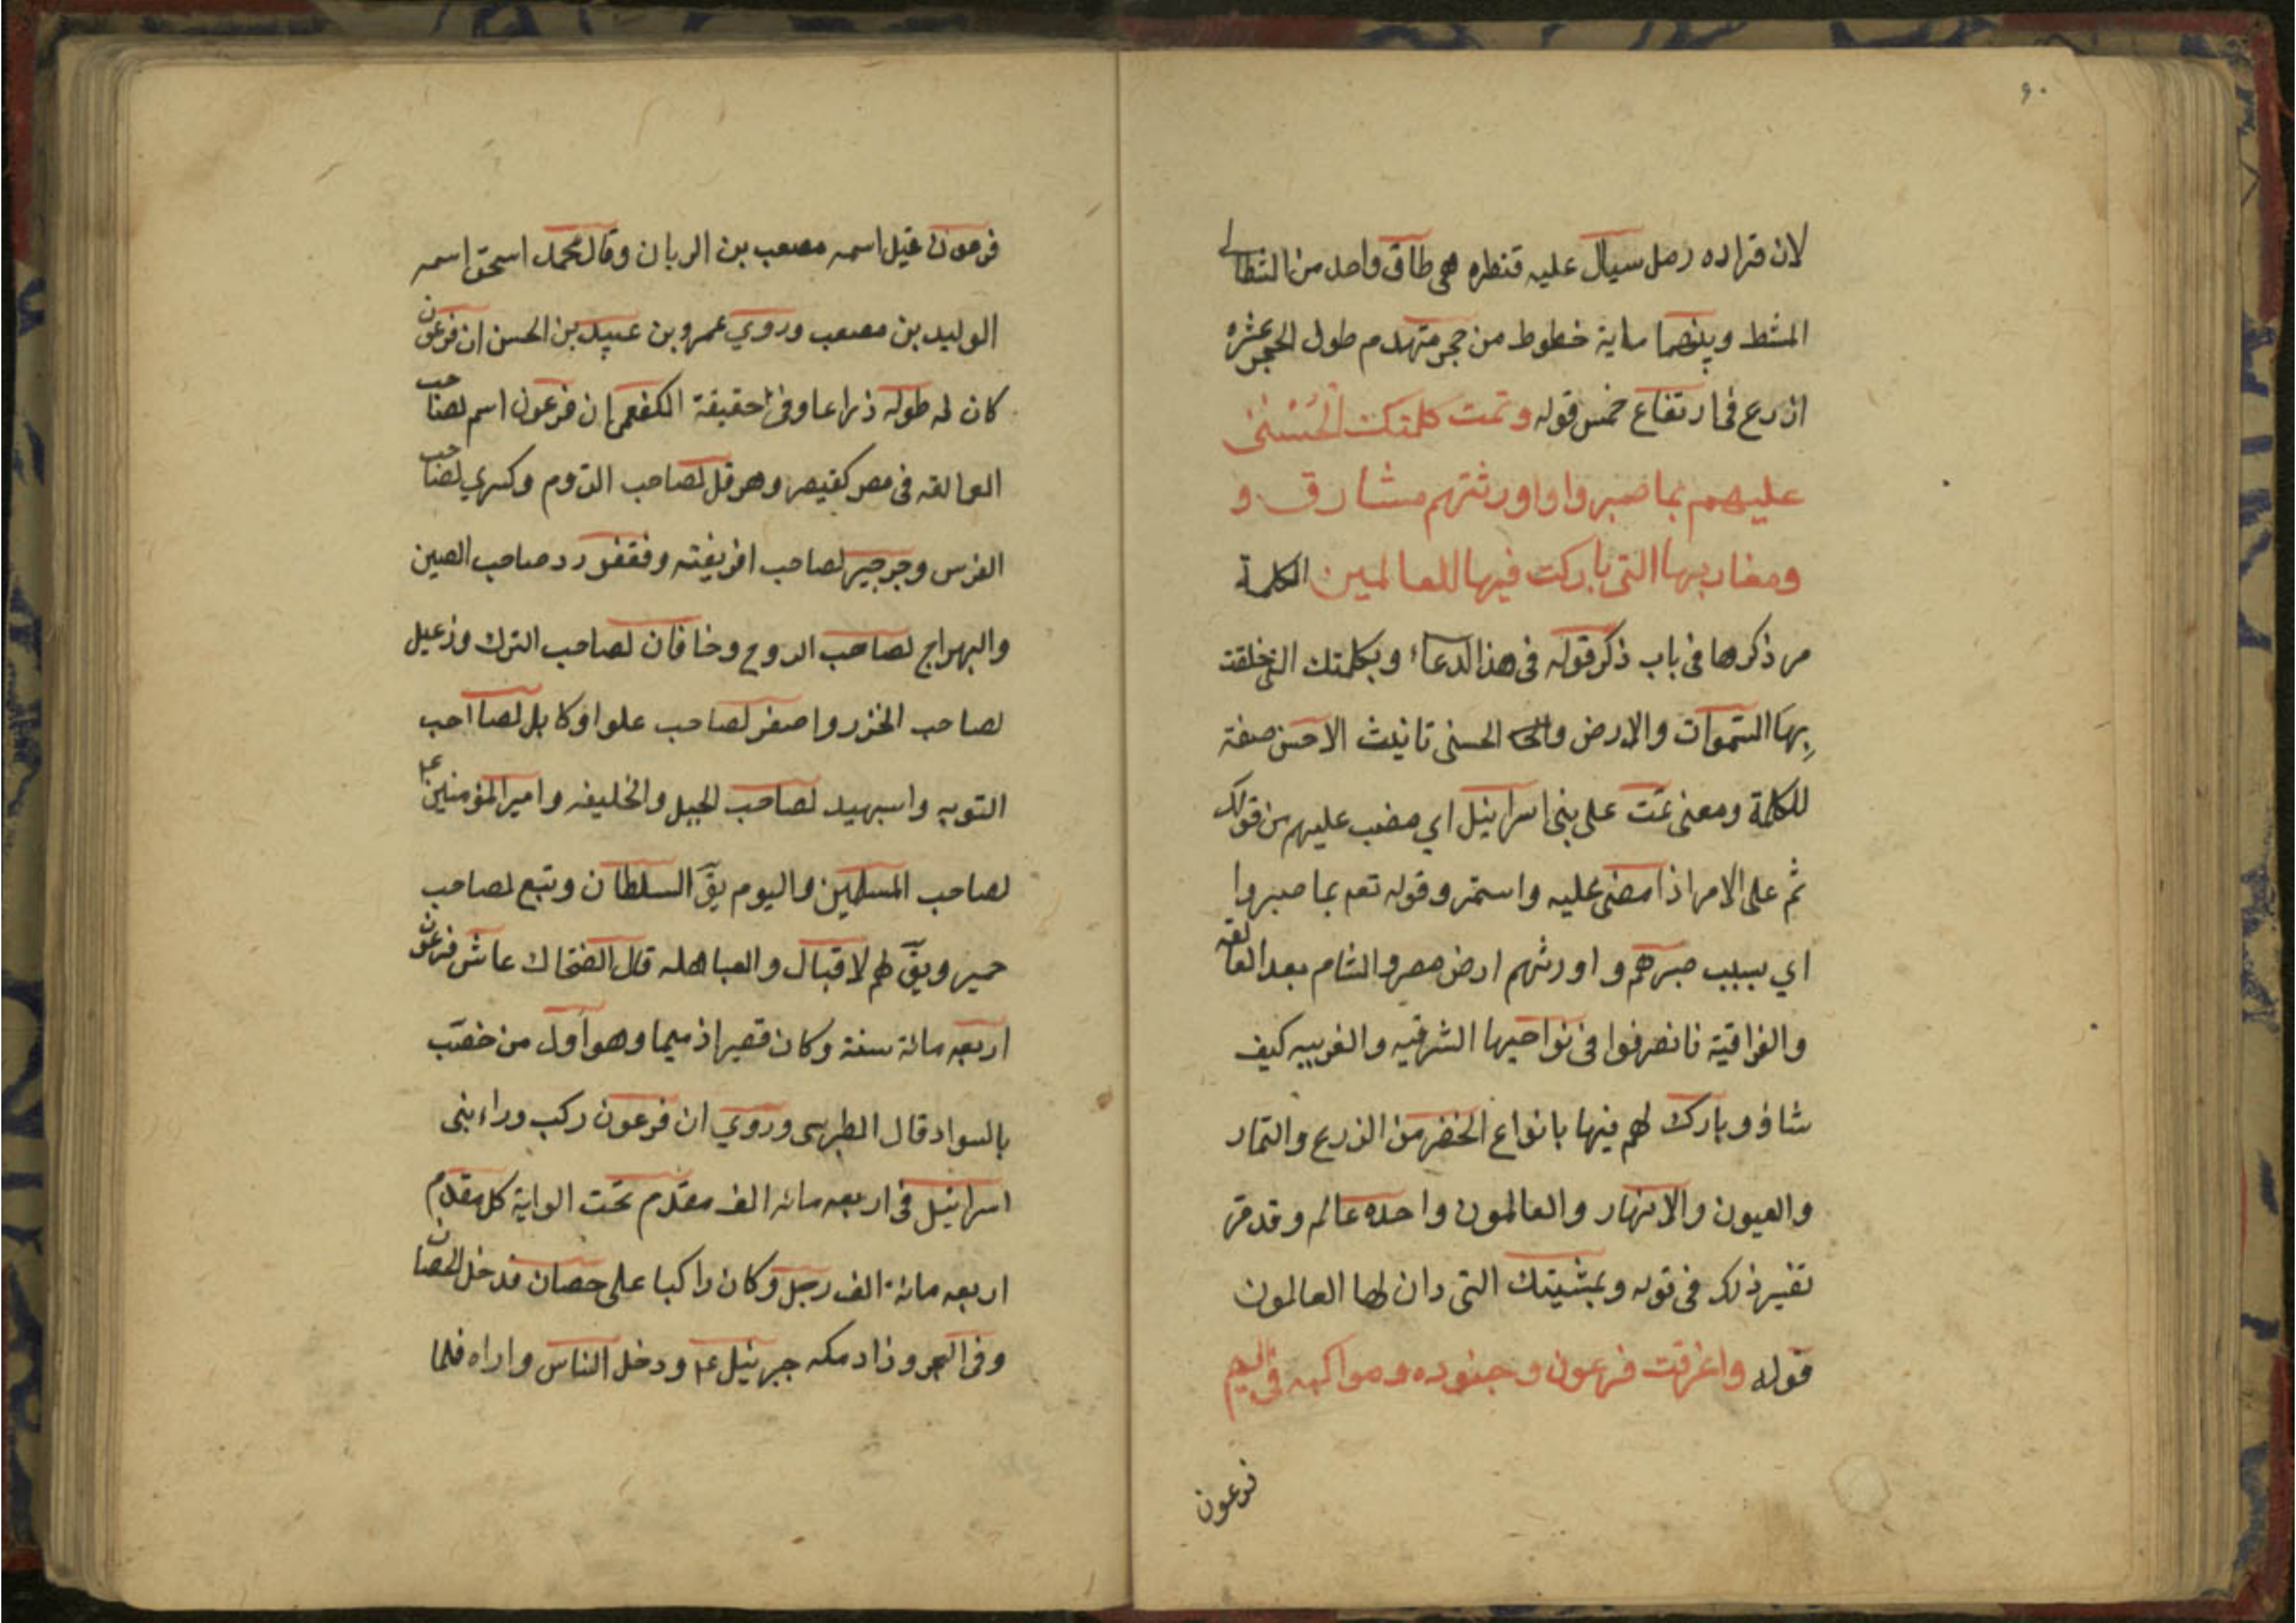 ٩٠
لان قراره رمل سيال عليه قنطره هي طاق واحد من الشط الى
الشط وبينهما ماية خطوط من حجر متهدم طول الحجر عشره
اذرع في ارتفاع خمس قوله وتمت كلمتك الحُسْنىٰ
عليهم بما صبروا واورثتهم مشارق و
ومغاربها التي باركت فيها للعالمين الكلمة
مر ذكرها في باب ذكر قوله في هذا الدعاء وبكلمتك التي خلقت
بها السموات والارض والحسنى تانيث الاحسن صفة
للكلمة ومعنى تمت على بنى اسرائيل اي مضت عليهم من قولك
ثم على الامر اذا مضى عليه واستمر وقوله تعم بما صبروا
اي بسبب صبرهم واورثهم ارض مصر والشام بعد العمالقه
والفراقية فانصرفوا في نواحيها الشرقيه والغربيه كيف
شاؤ وبارك لهم فيها بانواع الخضر من الزرع والثمار
والعيون والانهار والعالمون واحده عالم وقد مر
تفسير ذلك في قوله وبمشيتك التي دان لها العالمون
قوله واغرقت فرعون وجنوده ومواكبه في اليم
فرعون
فرعون قيل اسمه مصعب بن الريان وقال محمد اسحق اسمه
الوليد بن مصعب وروي عمرو بن عبيد بن الحسن ان فرعون
كان له طوله ذراعا وفي حقيقة الكفعمي ان فرعون اسم لصاحب
العمالقه في مصر كقيصر وهرقل لصاحب الروم وكسري لصاحب
الفرس وجرجير لصاحب افريقته وفغفور د صاحب الصين
والبهراج لصاحب الروح وخاقان لصاحب الترك وزعيل
لصاحب الخزر واصفر لصاحب علوا وكابل لصااحب
النوبه واسبهيد لصاحب الجبل والخليفه وامير المؤمنين ع
لصاحب المسلمين واليوم يقّ السلطان وتبع لصاحب
حمير ويقّ لهم لاقبال والعباهله قال الضحاك عاش فرعون
اربعه مائة سنة وكان قصيرا ذميما وهو اول من خضب
بالسواد قال الطبرسى وروي ان فرعون ركب وراء بنى
اسرائيل في اربعه مائه الف مقدم تحت الواية كل مقدم
اربعه مائة الف رجل وكان راكبا على حصان فدخل الحصان
وفى البحر و زاد مكه جبرئيل ع ودخل الناس واراه فلما